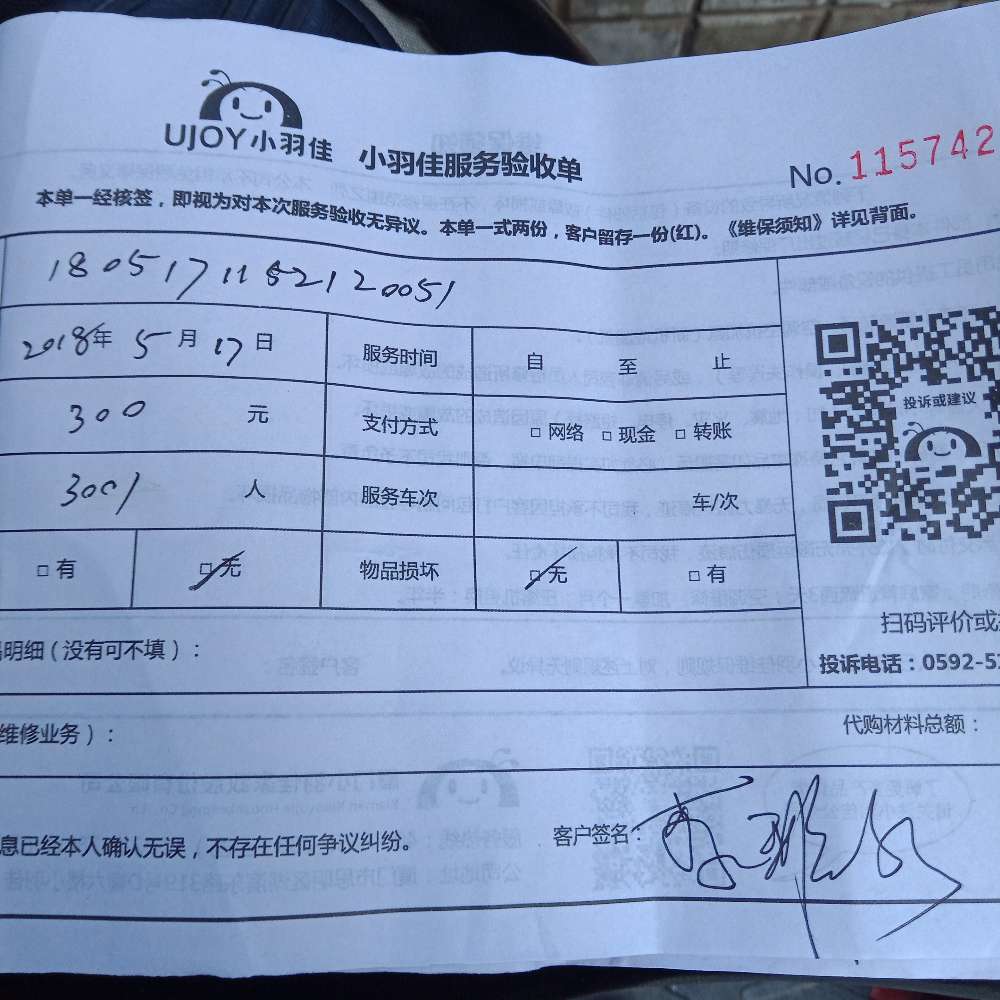 UJOY小羽佳 小羽佳服务验收单 No. 115742
本单一经核签，即视为对本次服务验收无异议。本单一式两份，客户留存一份(红)。《维保须知》详见背面。
1805171152120051
2018年 5 月 17 日 服务时间 自 至 止
投诉或建议
300 元 支付方式 □ 网络 □ 现金 □ 转账
3001 人 服务车次 车/次
□ 有 □ 无 物品损坏 □ 无 □ 有
扫码评价或
明细（没有可不填）：
投诉电话：0592-5
维修业务）： 代购材料总额：
息已经本人确认无误，不存在任何争议纠纷。 客户签名：